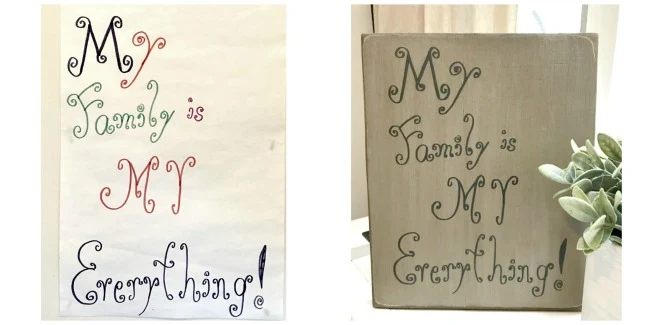 My
Family is
MY
Everything!
My
Family is
MY
Everything!